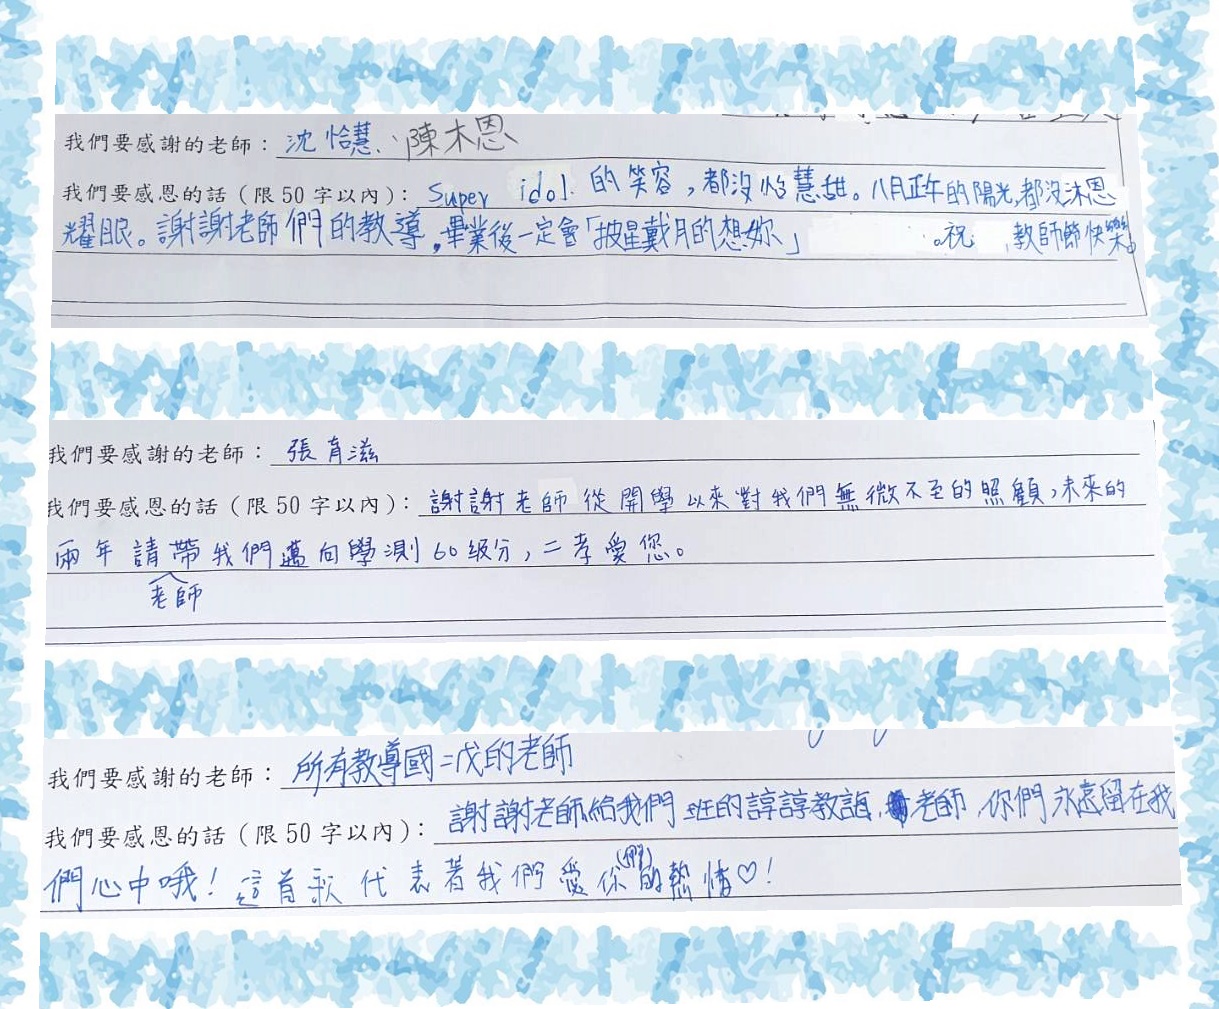 我們要感謝的老師：沈怡慧、陳木恩
我們要感恩的話（限50字以內）：Super idol 的笑容，都沒怡慧甜。八月正午的陽光，都沒沐恩
耀眼。謝謝老師們的教導，畢業後一定會「披星戴月的想妳」。祝 教師節快樂。
我們要感謝的老師：張育滋
我們要感恩的話（限50字以內）：謝謝老師從開學以來對我們無微不至的照顧，未來的
兩年請帶我們邁向學測60级分，二孝愛您。
老師
我們要感謝的老師：所有教導國二戊的老師
我們要感恩的話（限50字以內）：謝謝老師給我們班的諄諄教誨，老師，你們永遠留在我
們心中哦！這首歌代表著我們愛你(們)的熱情♡！